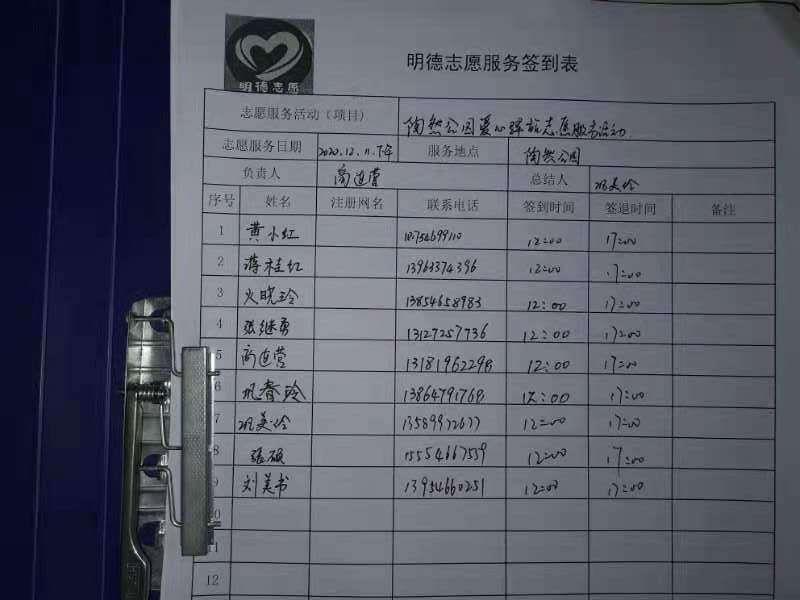 明德志愿
明德志愿服务签到表
志愿服务活动（项目） 陶然公园爱心驿站志愿服务活动
志愿服务日期 2020.12.11.下午 服务地点 陶然公园
负责人 高连营 总结人 巩美玲
序号 姓名 注册网名 联系电话 签到时间 签退时间 备注
1 黄小红 18754699110 12:00 17:00
2 蒋桂红 13963374396 12:00 17:00
3 火晓玲 13854658983 12:00 17:00
4 张继勇 13127257736 12:00 17:00
5 高连营 13181962298 12:00 17:00
6 巩春玲 13864791768 12:00 17:00
7 巩美玲 13589972677 12:00 17:00
8 张硕 15554667559 12:00 17:00
9 刘美书 13954660251 12:00 17:00
10
11
12